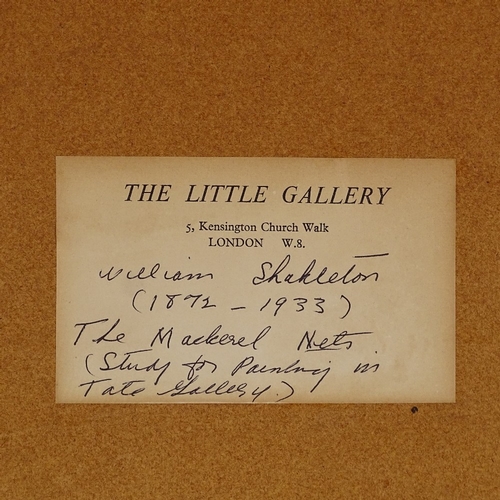 THE LITTLE GALLERY
5, Kensington Church Walk
LONDON W.8.
William Shakleton
(1872 – 1933)
The Mackerel Nets
(Study for Painting in
Tate Gallery.)